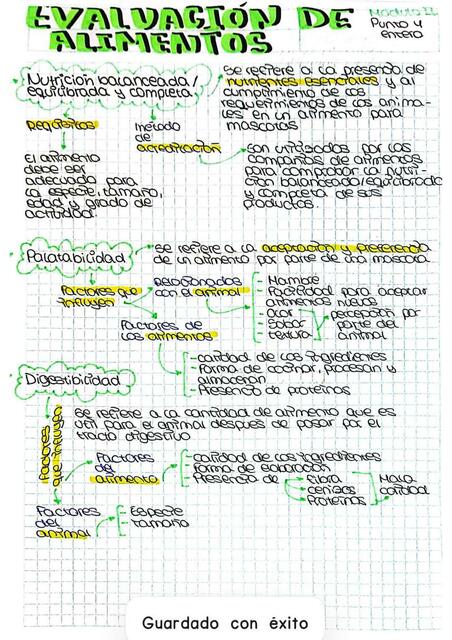 EVALUACIÓN DE
ALIMENTOS
Modulo II
Punto y
entero
Nutrición balanceada/
equilibrada y completa
se refiere a la presencia de
nutrientes esenciales y al
cumplimiento de los
requerimientos de los anima-
les en un alimento para
mascotas
Requisitos
método
de
acreditación
El alimento
debe ser
adecuado para
la especie, tamaño,
edad y grado de
actividad.
Son utilizados por las
compañías de alimentos
para comprobar la nutri-
ción balanceada/equilibrada
y completa de sus
productos.
Palatabilidad
se refiere a la aceptación y preferencia
de un alimento por parte de una mascota
Factores que
influyen
Relacionados
con el animal
- Hambre
- Facilidad para aceptar
alimentos nuevos
- Olor
- Sabor
- textura
percepción por
parte del
animal
Factores de
los alimentos
- calidad de los ingredientes
- Forma de cocinar, procesan y
almacenan
- Presencia de proteínas
Digestibilidad
se refiere a la cantidad de alimento que es
útil para el animal despues de pasar por el
tracto digestivo
Factores
que influyen
Factores
del
alimento
- calidad de los ingredientes
- forma de elaboración
- Presencia de
Fibra
cenizas
Proteínas
Mala
calidad
Factores
del
animal
- Especie
- tamaño
Guardado con éxito